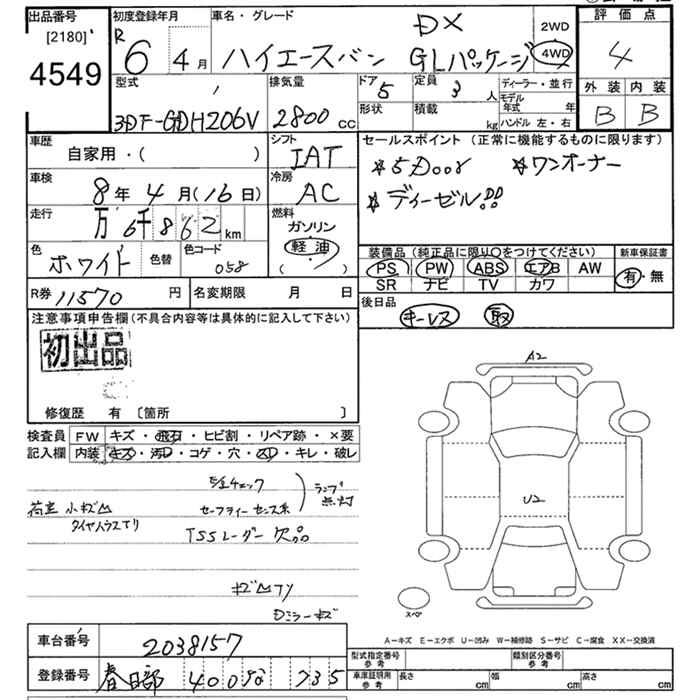 出品番号 [2180] 4549
初度登録年月 R 6 年 4 月
車名・グレード ハイエースバン DX GLパッケージ
2WD 4WD
評価点 4
外装 B 内装 B
型式 3DF-GDH206V
排気量 2800 cc
ドア 5
形状
定員 3 人
積載 kg
ディーラー・並行
モデル年式 年
ハンドル 左・右
車歴 自家用・( )
シフト IAT
セールスポイント (正常に機能するものに限ります)
☆5Door ☆ワンオーナー
☆ディーゼル!!
車検 8 年 4 月 (16 日)
冷房 AC
走行 万 6千862 km
燃料 ガソリン 軽油 ( ・ )
色 ホワイト 色替 色コード 058
装備品 (純正品に限り○をつけてください)
PS PW ABS エアB AW
SR ナビ TV カワ
新車保証書 有・無
R券 11570 円 名変期限 月 日
後日品
キーレス 取
注意事項申告欄 (不具合内容等は具体的に記入して下さい)
初出品
修復歴 有 〔箇所 〕
検査員記入欄
FW キズ・飛石・ヒビ割・リペア跡・×要
内装 キズ・汚れ・コゲ・穴・スレ・キレ・破レ
A2
U2
5/Eチェック
荷室 小キズ凹
セーフティーセンス系
ランプ点灯
タイヤハウスサリ
TSSレーダー欠品
キズ凹アリ
Dミラーキズ
スペア
A-キズ E-エクボ U-凹み W-補修跡 S-サビ C-腐食 XX-交換済
車台番号 2038157
登録番号 春日部 400 な 735
型式指定番号 参考
類別区分番号 参考
車庫証明用 参考 長さ cm 幅 cm 高さ cm